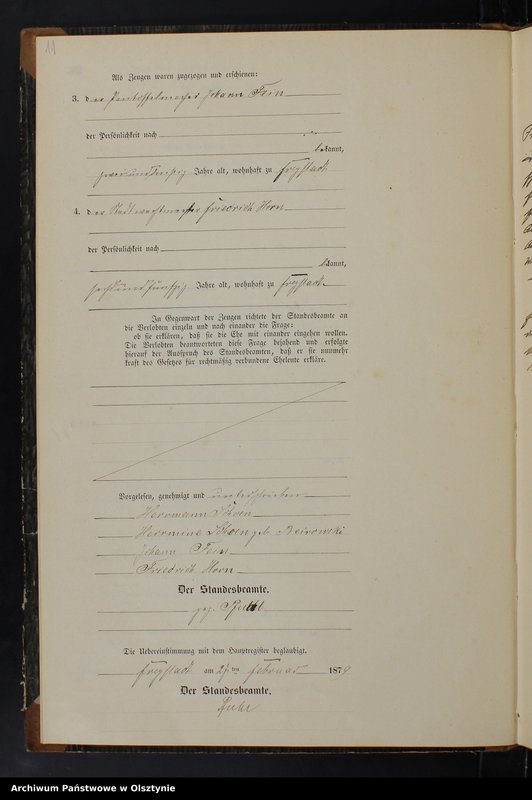 11
Als Zeugen waren zugezogen und erschienen:
3. der Pantoffelmacher Johann Fein
der Persönlichkeit nach
bekannt,
zweiunddreißig Jahre alt, wohnhaft zu Freystadt
4. der Stadtwachtmeister Friedrich Horn
der Persönlichkeit nach
bekannt,
sechsundfünfzig Jahre alt, wohnhaft zu Freystadt
In Gegenwart der Zeugen richtete der Standesbeamte an
die Verlobten einzeln und nach einander die Frage:
ob sie erklären, daß sie die Ehe mit einander eingehen wollen.
Die Verlobten beantworteten diese Frage bejahend und erfolgte
hierauf der Ausspruch des Standesbeamten, daß er sie nunmehr
kraft des Gesetzes für rechtmäßig verbundene Eheleute erkläre.
Vorgelesen, genehmigt und unterschrieben
Herrmann Schoen
Hermine Schoen geb.
Johann Fein
Friedrich Horn
Der Standesbeamte.
gez.
Die Uebereinstimmung mit dem Hauptregister beglaubigt.
Freystadt am Februar 1879
Der Standesbeamte.
Archiwum Państwowe w Olsztynie